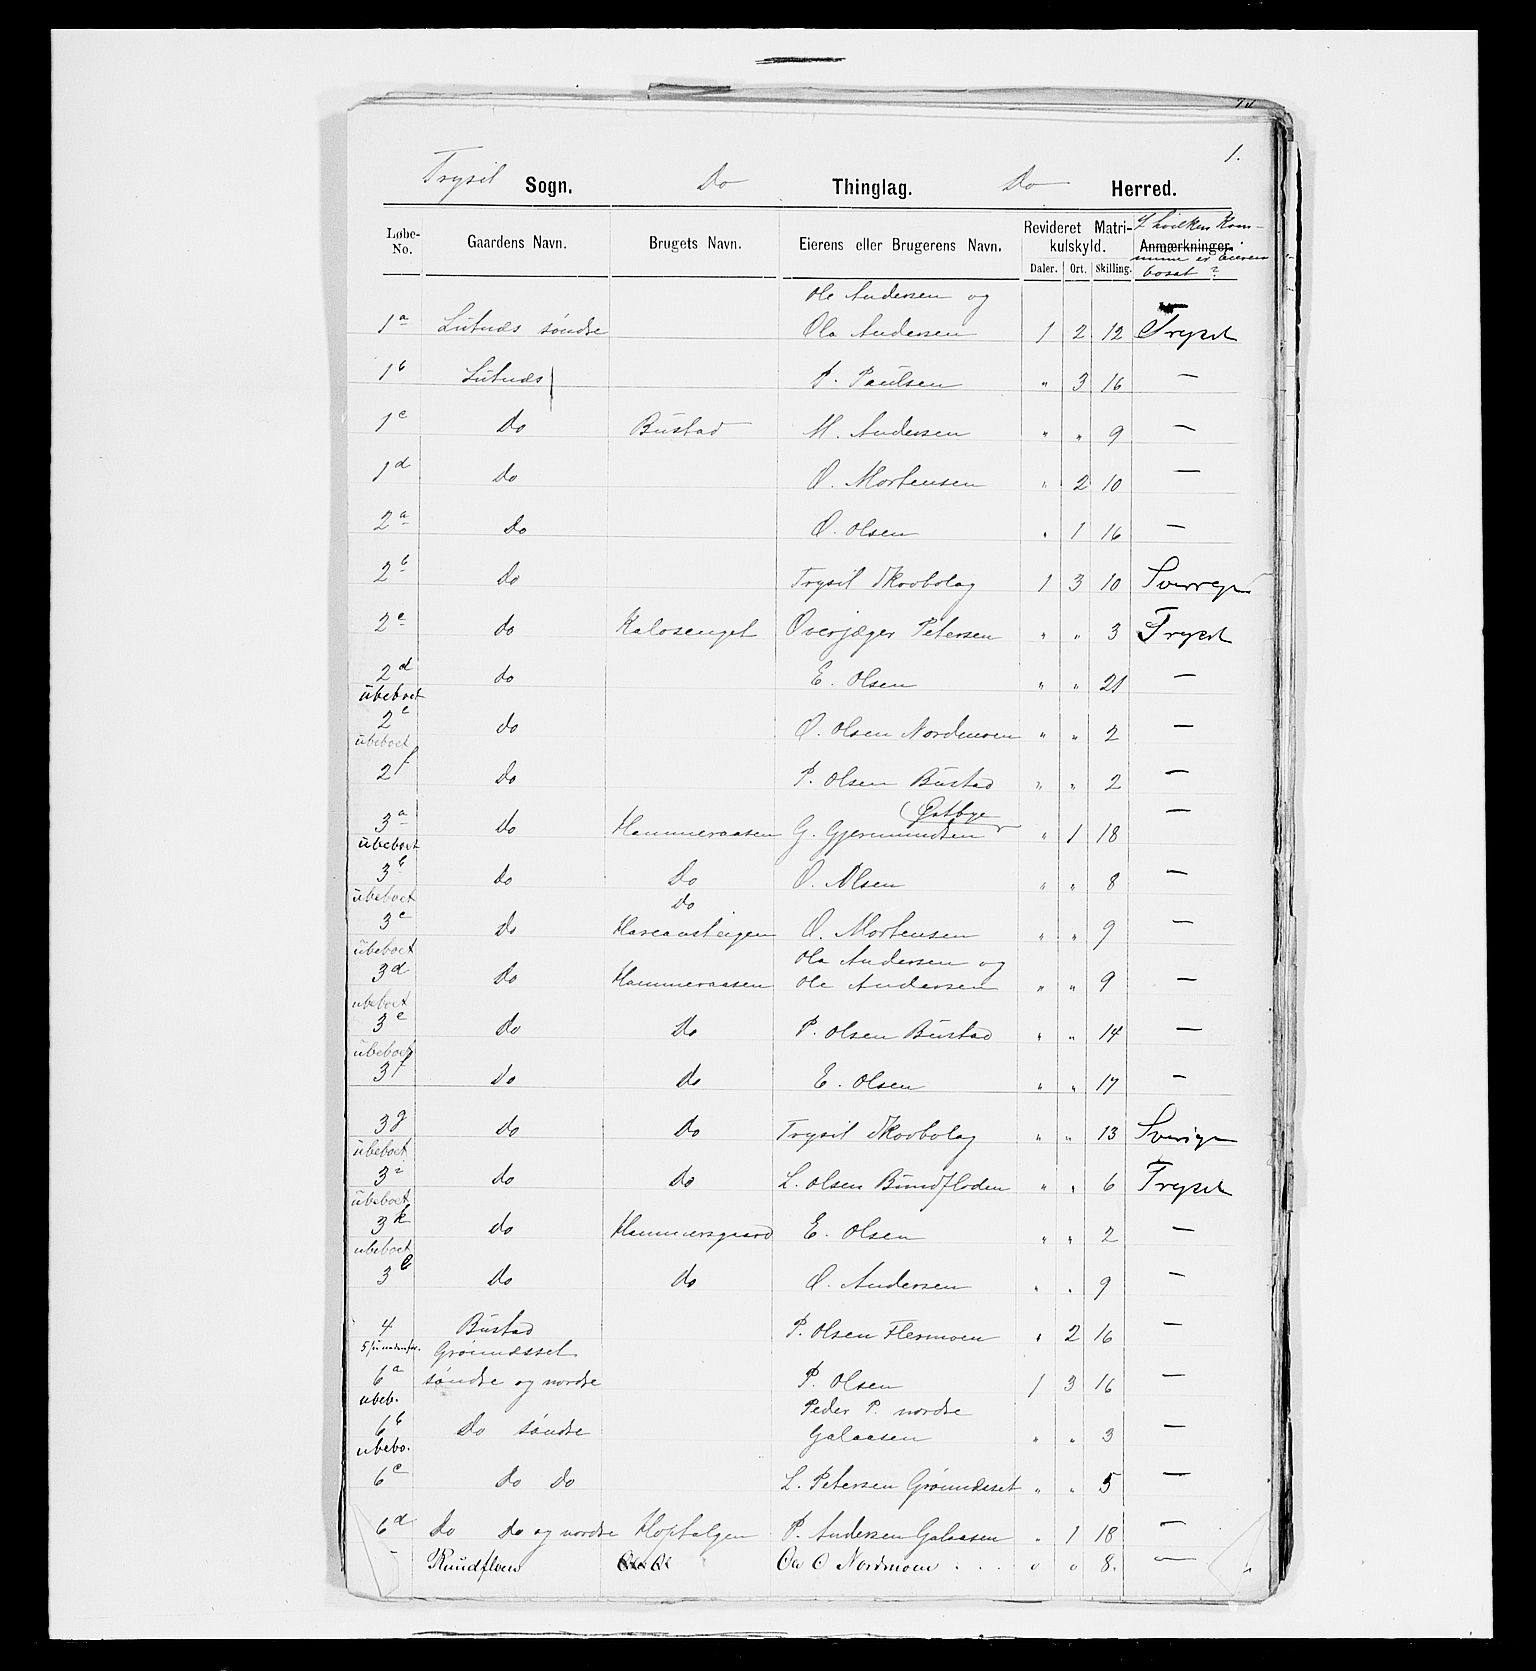 1.
Trysil Sogn. Do Thinglag. Do Herred.
Løbe-No. Gaardens Navn. Brugets Navn. Eierens eller Brugerens Navn. Revideret Matrikulskyld. Daler. Ort. Skilling. Anmærkninger. I hvilken Kommune er Eieren bosat?
Ole Andersen og
1a Lutnæs søndre Ola Andersen 1 2 12 Trysil
1b Lutnæs P. Paulsen " 3 16 —
1c Do Bustad M. Andersen " " 9 —
1d Do O. Mortensen " 2 10 —
2a Do O. Olsen " 1 16 —
2b Do Trysil Skovbolag 1 3 10 Sverrige
2c do Kalosenget Overjæger Petersen " " 3 Trysil
2d do E. Olsen " " 21 —
ubeboet
2e do O. Olsen Nordmoen " " 2 —
ubeboet
2f do P. Olsen Bustad " " 2 —
Østbye
3a Do Hammeraasen G. Gjermundsen " 1 18 —
ubeboet
3b do Do O. Olsen " " 8 —
ubeboet Do
3c do O. Mortensen " " 9 —
ubeboet Ola Andersen og
3d do Hammeraasen Ole Andersen " " 9 —
ubeboet
3e do Do P. Olsen Bustad " " 14 —
ubeboet
3f do do E. Olsen " " 17 —
3g do Do Trysil Skovbolag " " 13 Sverige
ubeboet
3i do do L. Olsen Bundfloden " " 6 Trysil
ubeboet
3k do Hammersgaard E. Olsen " " 2 —
ubeboet
3l do do O. Andersen " " 9 —
4 Bustad P. Olsen Flermoen " 2 16 —
Grønnæsset
6a søndre og nordre P. Olsen 1 3 16 —
ubeb. Peder P. nordre
6b Do søndre Galaasen " " 3 —
ubebo.
6c Do Do L. Petersen Grønnæsset " " 5 —
6d Do Do og nordre P. Andersen Galaasen " 1 18 —
Ole O Nordmoen . . . " " 8. —